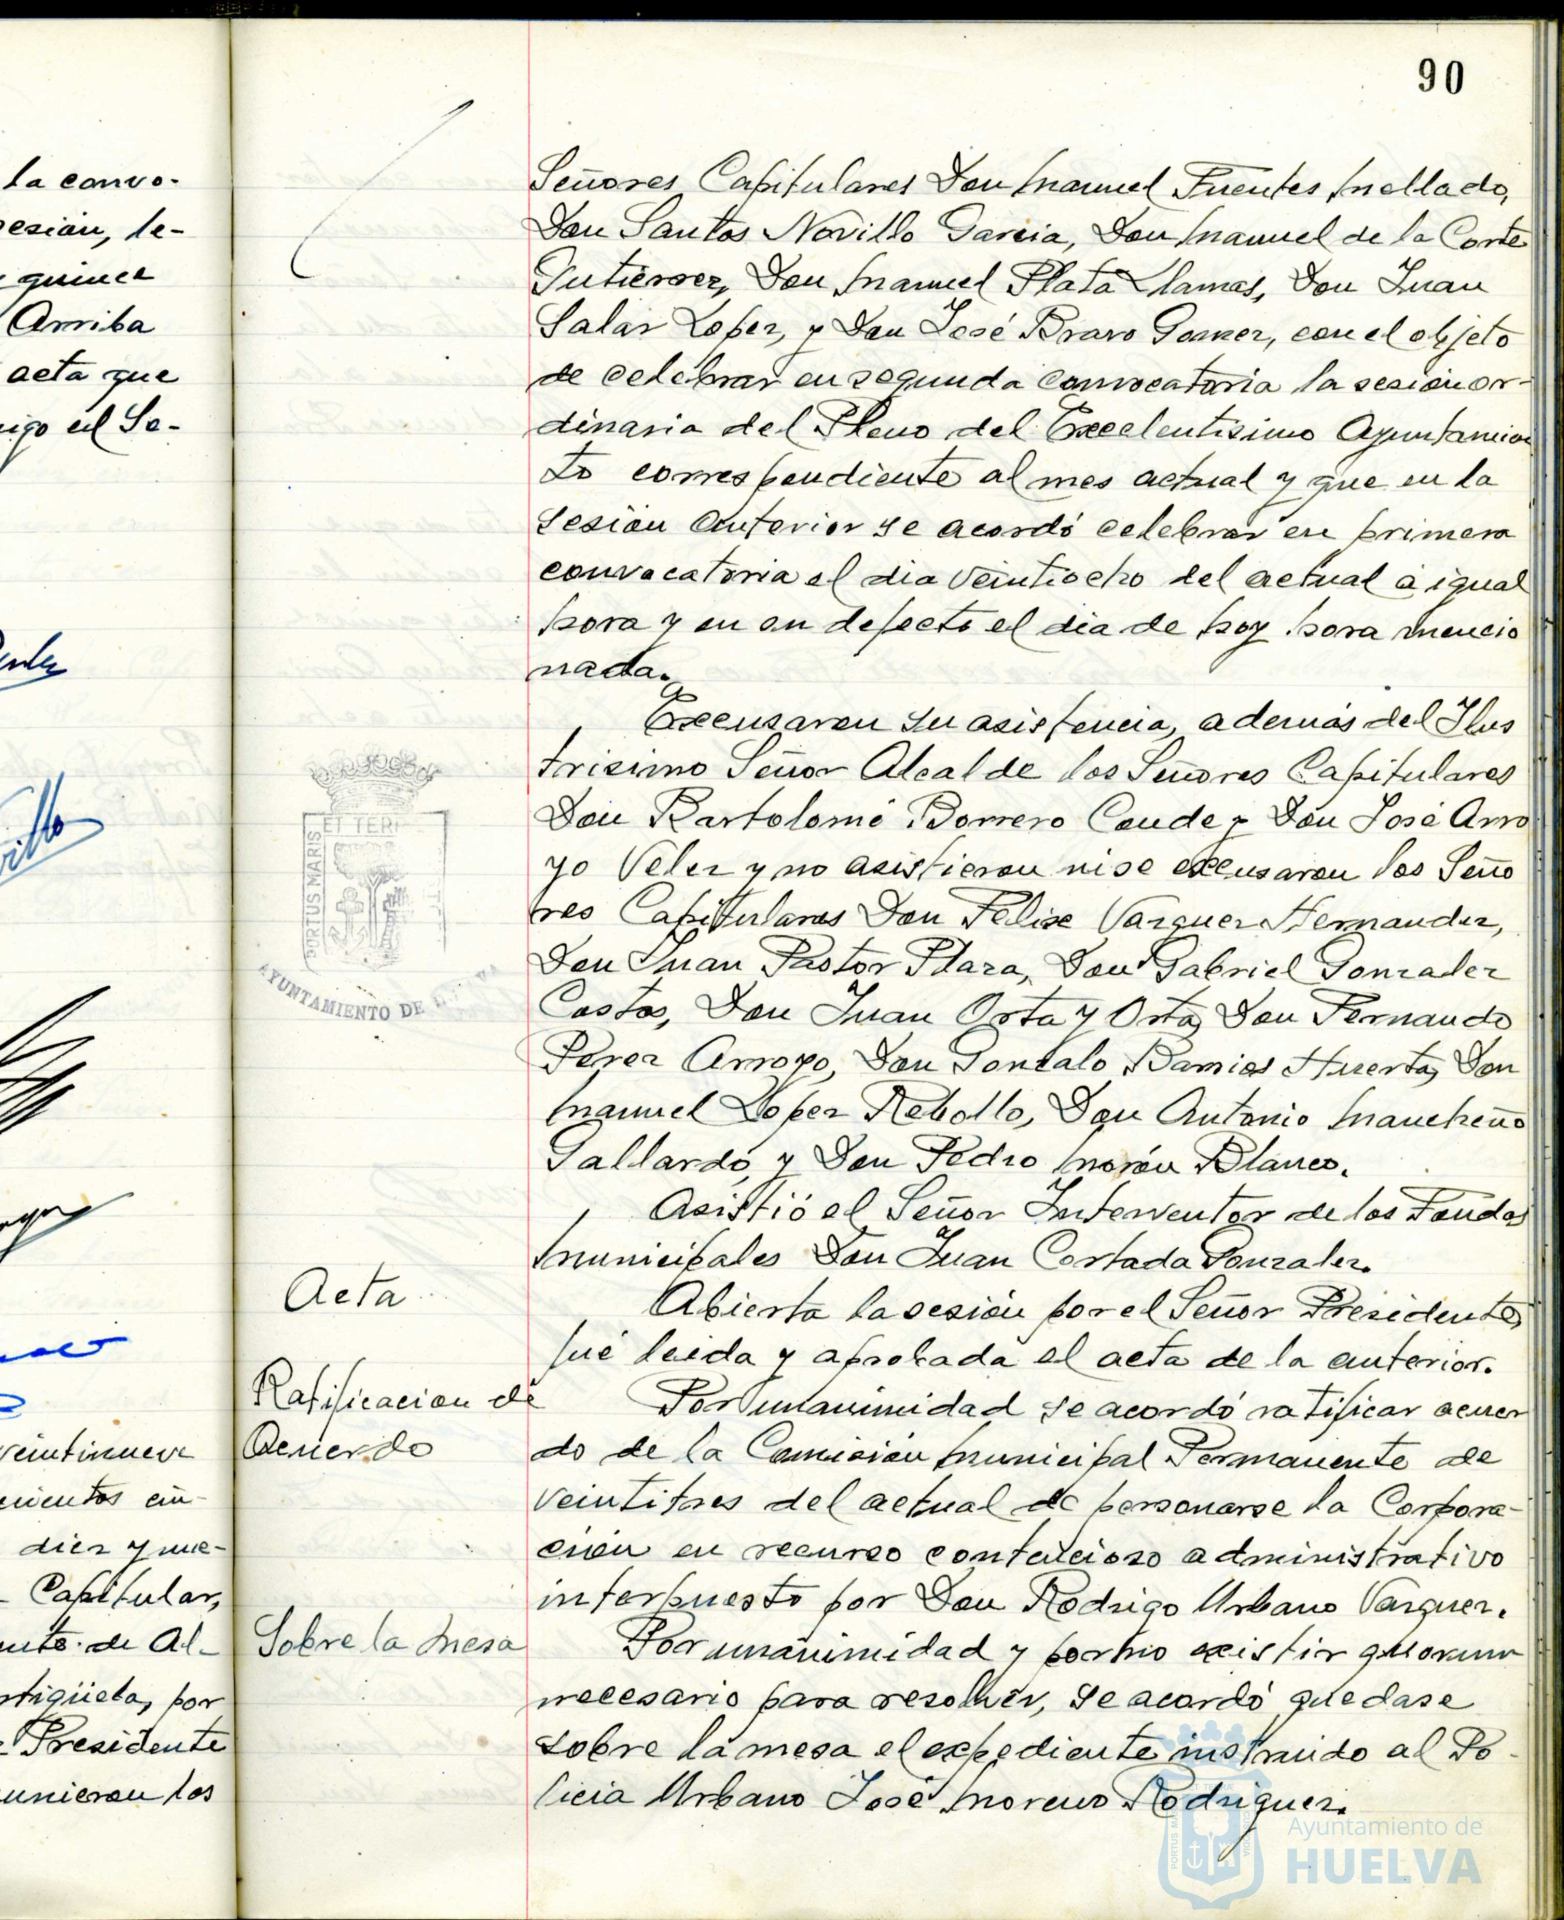 90
la convo-
esión, le-
quince
Arriba
acta que
igo el Se-
veintinueve
cientos cin-
diez y nue-
Capitular,
nte de Al-
rtigüela, por
Presidente
unieron los
Señores Capitulares Don Manuel Fuentes Mellado,
Don Santos Novillo Garcia, Don Manuel de la Corte
Gutiérrez, Don Manuel Plata Llamas, Don Juan
Salas Lopez, y Don José Bravo Gomez, con el objeto
de celebrar en segunda convocatoria la sesión or-
dinaria del Pleno del Excelentisimo Ayuntamien
to correspondiente al mes actual y que en la
sesión anterior se acordó celebrar en primera
convocatoria el dia veintiocho del actual á igual
hora y en su defecto el dia de hoy hora mencio
nada.
Excusaron su asistencia, además del Ilus
trisimo Señor Alcalde los Señores Capitulares
Don Bartolomé Borrero Conde y Don José Arro
yo Velez y no asistieron ni se excusaron los Seño
res Capitulares Don Felix Vazquez Hernandez,
Don Juan Pastor Plaza, Don Gabriel Gonzalez
Costas, Don Juan Orta y Orta, Don Fernando
Perez Arroyo, Don Gonzalo Barrios Huerta, Don
Manuel Lopez Rebollo, Don Antonio Mancheño
Gallardo, y Don Pedro Morón Blanco.
Asistió el Señor Interventor de los Fondos
Municipales Don Juan Cortada Gonzalez.
Acta
Abierta la sesión por el Señor Presidente,
fué leida y aprobada el acta de la anterior.
Ratificacion de
Acuerdo
Por unanimidad se acordó ratificar acuer
do de la Comisión Municipal Permanente de
veintitres del actual de personarse la Corpora-
ción en recurso contencioso administrativo
interpuesto por Don Rodrigo Urbano Vazquez.
Sobre la mesa
Por unanimidad y por no existir quorum
necesario para resolver, se acordó quedase
sobre la mesa el expediente instruido al Po-
licia Urbano José Moreno Rodriguez.
ET TERR
PORTUS MARIS
AYUNTAMIENTO DE
Ayuntamiento de
HUELVA